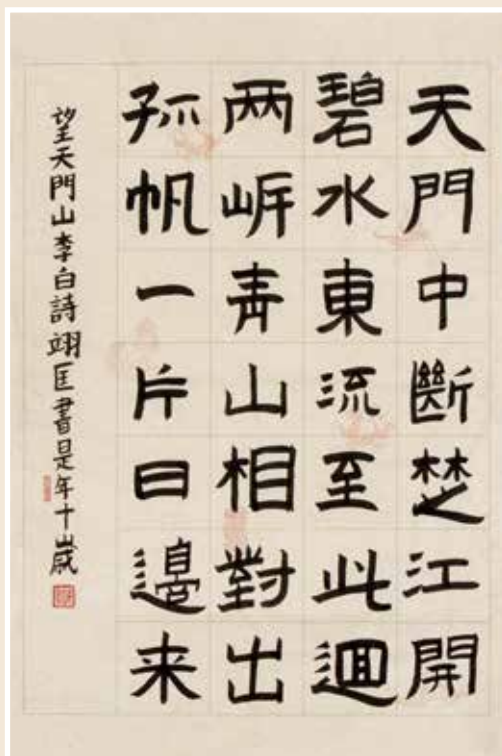 天門中斷楚江開
碧水東流至此迴
两岸青山相對出
孤帆一片日邊来
望天門山李白詩翊匡書是年十歲